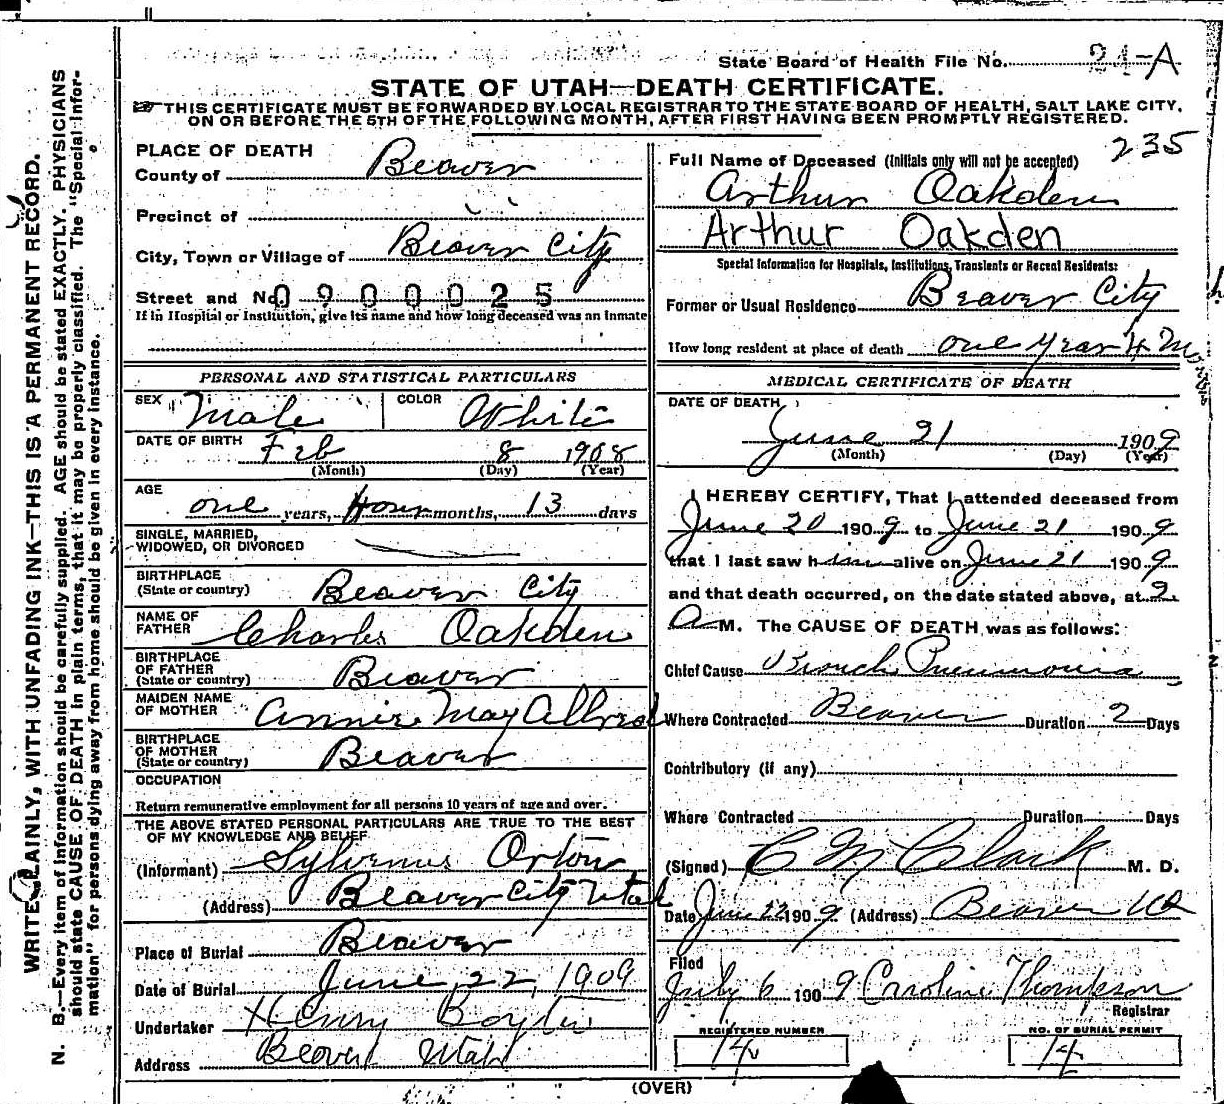 State Board of Health File No. 24-A
STATE OF UTAH—DEATH CERTIFICATE.
THIS CERTIFICATE MUST BE FORWARDED BY LOCAL REGISTRAR TO THE STATE BOARD OF HEALTH, SALT LAKE CITY,
ON OR BEFORE THE 5TH OF THE FOLLOWING MONTH, AFTER FIRST HAVING BEEN PROMPTLY REGISTERED.
235
WRITE PLAINLY, WITH UNFADING INK—THIS IS A PERMANENT RECORD.
N. B.—Every item of information should be carefully supplied. AGE should be stated EXACTLY. PHYSICIANS
should state CAUSE OF DEATH in plain terms, that it may be properly classified. The "Special Infor-
mation" for persons dying away from home should be given in every instance.
PLACE OF DEATH
County of Beaver
Precinct of
City, Town or Village of Beaver City
Street and No. 0900025
If in Hospital or Institution, give its name and how long deceased was an inmate
PERSONAL AND STATISTICAL PARTICULARS
SEX Male COLOR White
DATE OF BIRTH Feb 8 1908
(Month) (Day) (Year)
AGE
one years, Four months, 13 days
SINGLE, MARRIED,
WIDOWED, OR DIVORCED
BIRTHPLACE
(State or country) Beaver City
NAME OF
FATHER Charles Oakden
BIRTHPLACE
OF FATHER
(State or country) Beaver
MAIDEN NAME
OF MOTHER Annie May Allred
BIRTHPLACE
OF MOTHER
(State or country) Beaver
OCCUPATION
Return remunerative employment for all persons 10 years of age and over.
THE ABOVE STATED PERSONAL PARTICULARS ARE TRUE TO THE BEST
OF MY KNOWLEDGE AND BELIEF
(Informant) Sylvenus Orton
(Address) Beaver City Utah
Place of Burial Beaver
Date of Burial June 22, 1909
Undertaker Henry Boyter
Address Beaver Utah
Full Name of Deceased (Initials only will not be accepted)
Arthur Oakden
Arthur Oakden
Special Information for Hospitals, Institutions, Transients or Recent Residents:
Former or Usual Residence Beaver City
How long resident at place of death one year 4 Mo
MEDICAL CERTIFICATE OF DEATH
DATE OF DEATH
June 21 1909
(Month) (Day) (Year)
I HEREBY CERTIFY, That I attended deceased from
June 20 1909 to June 21 1909
that I last saw him alive on June 21 1909
and that death occurred, on the date stated above, at 2
A M. The CAUSE OF DEATH was as follows:
Chief Cause Bronch Pneumonia
Where Contracted Beaver Duration 2 Days
Contributory (if any)
Where Contracted Duration Days
(Signed) C M Clark M. D.
Date June 22 1909 (Address) Beaver Ut
Filed
July 6 1909 Caroline Thompson
Registrar
REGISTERED NUMBER
14
NO. OF BURIAL PERMIT
14
(OVER)